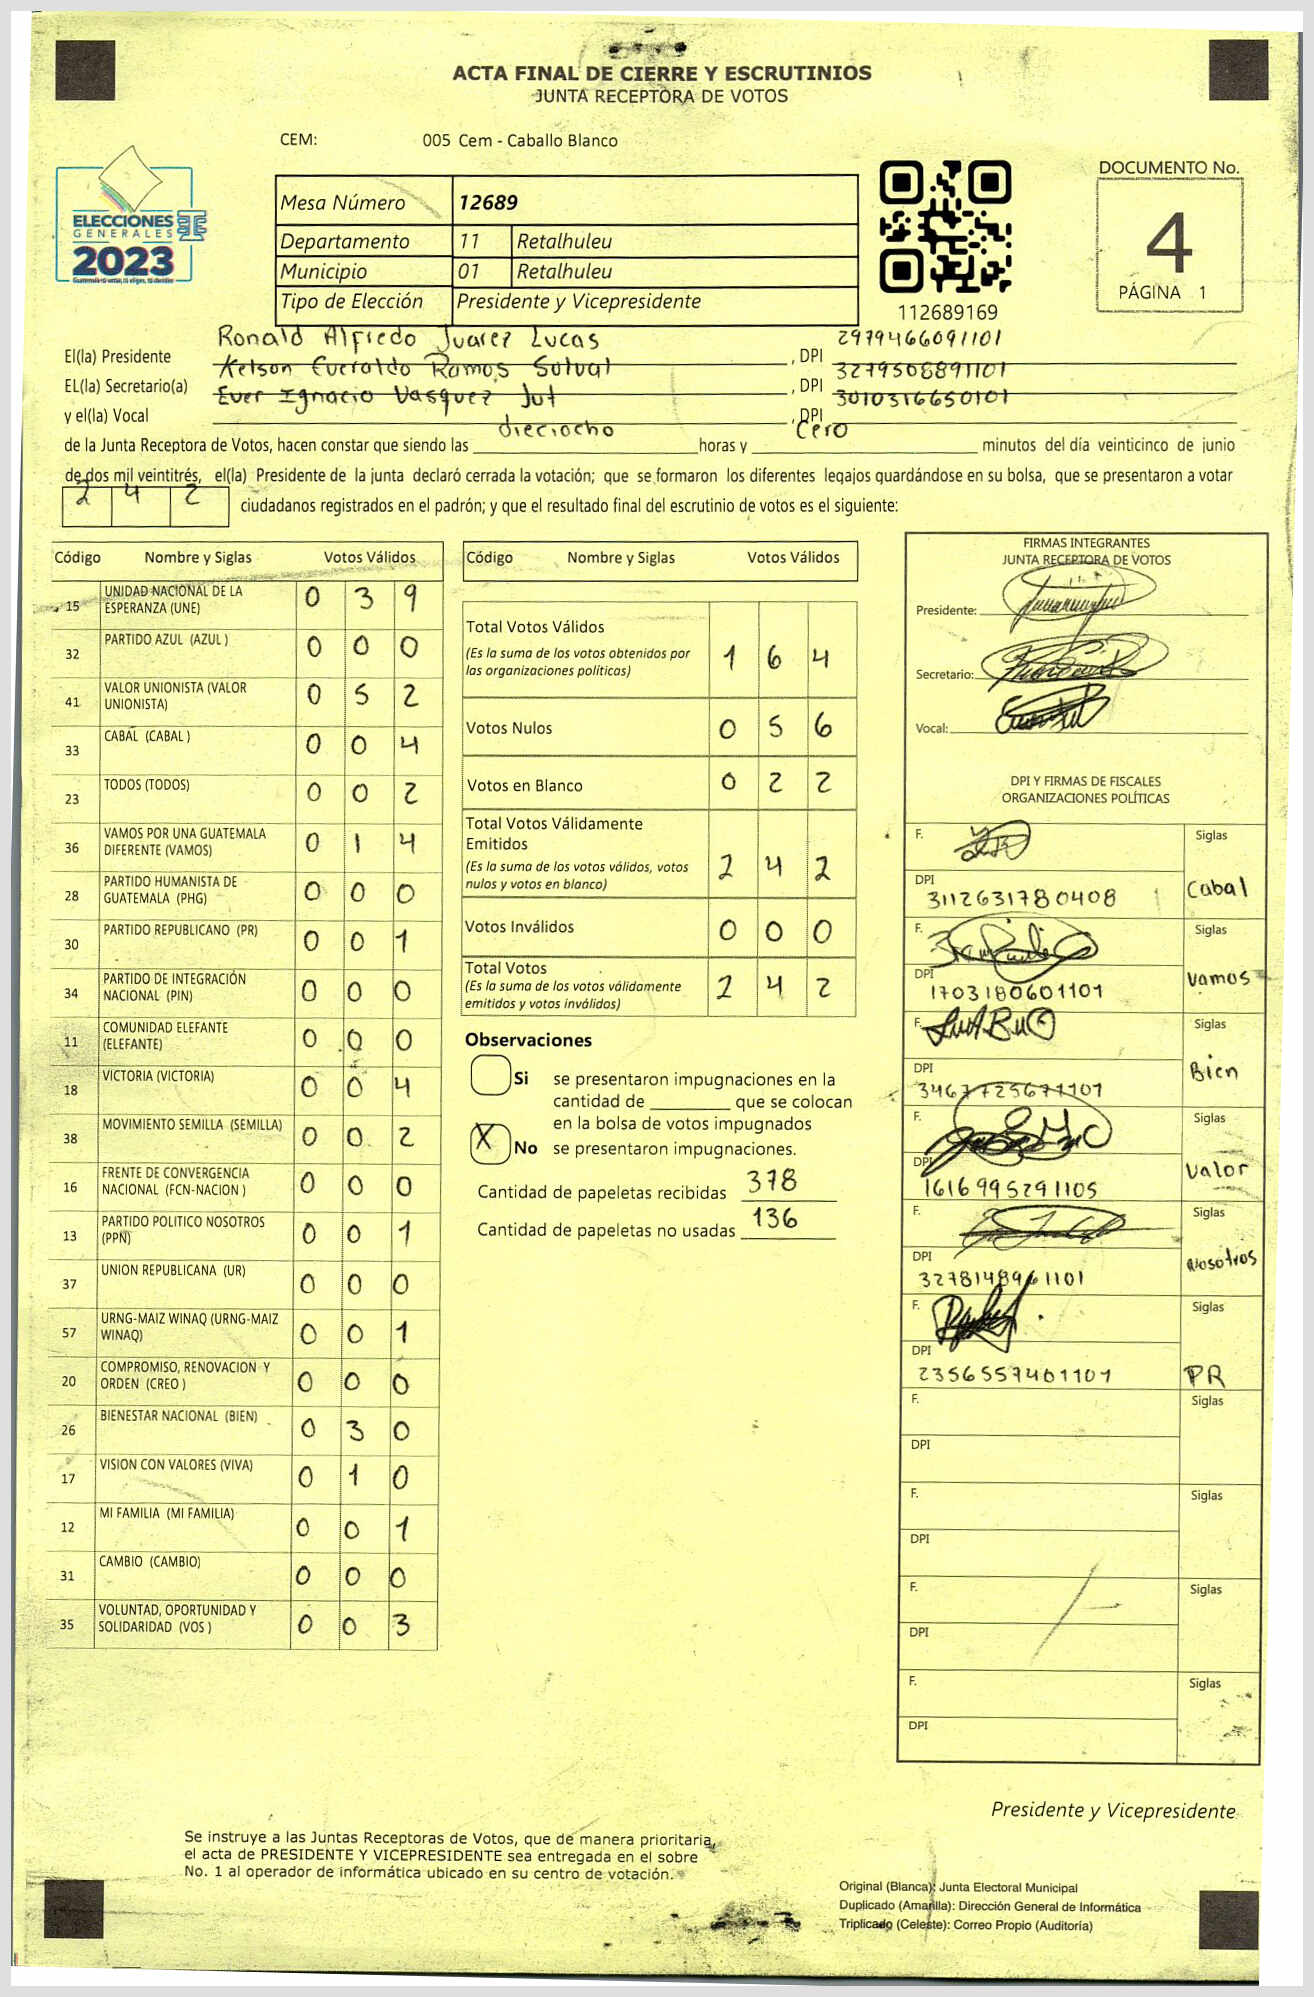 ACTA FINAL DE CIERRE Y ESCRUTINIOS
JUNTA RECEPTORA DE VOTOS
CEM: 005 Cem - Caballo Blanco
ELECCIONES
GENERALES
2023
Mesa Número 12689
Departamento 11 Retalhuleu
Municipio 01 Retalhuleu
Tipo de Elección Presidente y Vicepresidente
112689169
DOCUMENTO No.
4
PÁGINA 1
El(la) Presidente Ronald Alfredo Juarez Lucas, DPI 2979466091101
EL(la) Secretario(a) Kelson Everaldo Ramos Solval, DPI 3279508891101
y el(la) Vocal Ever Ignacio Vasquez Jut, DPI 3010316650101
de la Junta Receptora de Votos, hacen constar que siendo las dieciocho horas y Cero minutos del día veinticinco de junio
de dos mil veintitrés, el(la) Presidente de la junta declaró cerrada la votación; que se formaron los diferentes legajos guardándose en su bolsa, que se presentaron a votar
2 4 2 ciudadanos registrados en el padrón; y que el resultado final del escrutinio de votos es el siguiente:
Código Nombre y Siglas Votos Válidos
15 UNIDAD NACIONAL DE LA
ESPERANZA (UNE) 0 3 9
32 PARTIDO AZUL (AZUL ) 0 0 0
41 VALOR UNIONISTA (VALOR
UNIONISTA) 0 5 2
33 CABAL (CABAL ) 0 0 4
23 TODOS (TODOS) 0 0 2
36 VAMOS POR UNA GUATEMALA
DIFERENTE (VAMOS) 0 1 4
28 PARTIDO HUMANISTA DE
GUATEMALA (PHG) 0 0 0
30 PARTIDO REPUBLICANO (PR) 0 0 1
34 PARTIDO DE INTEGRACIÓN
NACIONAL (PIN) 0 0 0
11 COMUNIDAD ELEFANTE
(ELEFANTE) 0 0 0
18 VICTORIA (VICTORIA) 0 0 4
38 MOVIMIENTO SEMILLA (SEMILLA) 0 0 2
16 FRENTE DE CONVERGENCIA
NACIONAL (FCN-NACION ) 0 0 0
13 PARTIDO POLITICO NOSOTROS
(PPN) 0 0 1
37 UNION REPUBLICANA (UR) 0 0 0
57 URNG-MAIZ WINAQ (URNG-MAIZ
WINAQ) 0 0 1
20 COMPROMISO, RENOVACION Y
ORDEN (CREO ) 0 0 0
26 BIENESTAR NACIONAL (BIEN) 0 3 0
17 VISION CON VALORES (VIVA) 0 1 0
12 MI FAMILIA (MI FAMILIA) 0 0 1
31 CAMBIO (CAMBIO) 0 0 0
35 VOLUNTAD, OPORTUNIDAD Y
SOLIDARIDAD (VOS ) 0 0 3
Código Nombre y Siglas Votos Válidos
Total Votos Válidos
(Es la suma de los votos obtenidos por
las organizaciones políticas) 1 6 4
Votos Nulos 0 5 6
Votos en Blanco 0 2 2
Total Votos Válidamente
Emitidos
(Es la suma de los votos válidos, votos
nulos y votos en blanco) 2 4 2
Votos Inválidos 0 0 0
Total Votos
(Es la suma de los votos válidamente
emitidos y votos inválidos) 2 4 2
Observaciones
Si se presentaron impugnaciones en la
cantidad de ________ que se colocan
en la bolsa de votos impugnados
X No se presentaron impugnaciones.
Cantidad de papeletas recibidas 378
Cantidad de papeletas no usadas 136
FIRMAS INTEGRANTES
JUNTA RECEPTORA DE VOTOS
Presidente:
Secretario:
Vocal:
DPI Y FIRMAS DE FISCALES
ORGANIZACIONES POLÍTICAS
F. Siglas
DPI 3112631780408 Cabal
F. Siglas
DPI 1703180601101 Vamos
F. Siglas
DPI 3467725671101 Bien
F. Siglas
DPI 1616995291105 Valor
F. Siglas
DPI 3278148961101 Nosotros
F. Siglas
DPI 2356557401101 PR
F. Siglas
DPI
F. Siglas
DPI
F. Siglas
DPI
F. Siglas
DPI
Presidente y Vicepresidente
Se instruye a las Juntas Receptoras de Votos, que de manera prioritaria,
el acta de PRESIDENTE Y VICEPRESIDENTE sea entregada en el sobre
No. 1 al operador de informática ubicado en su centro de votación.
Original (Blanca): Junta Electoral Municipal
Duplicado (Amarilla): Dirección General de Informática
Triplicado (Celeste): Correo Propio (Auditoría)